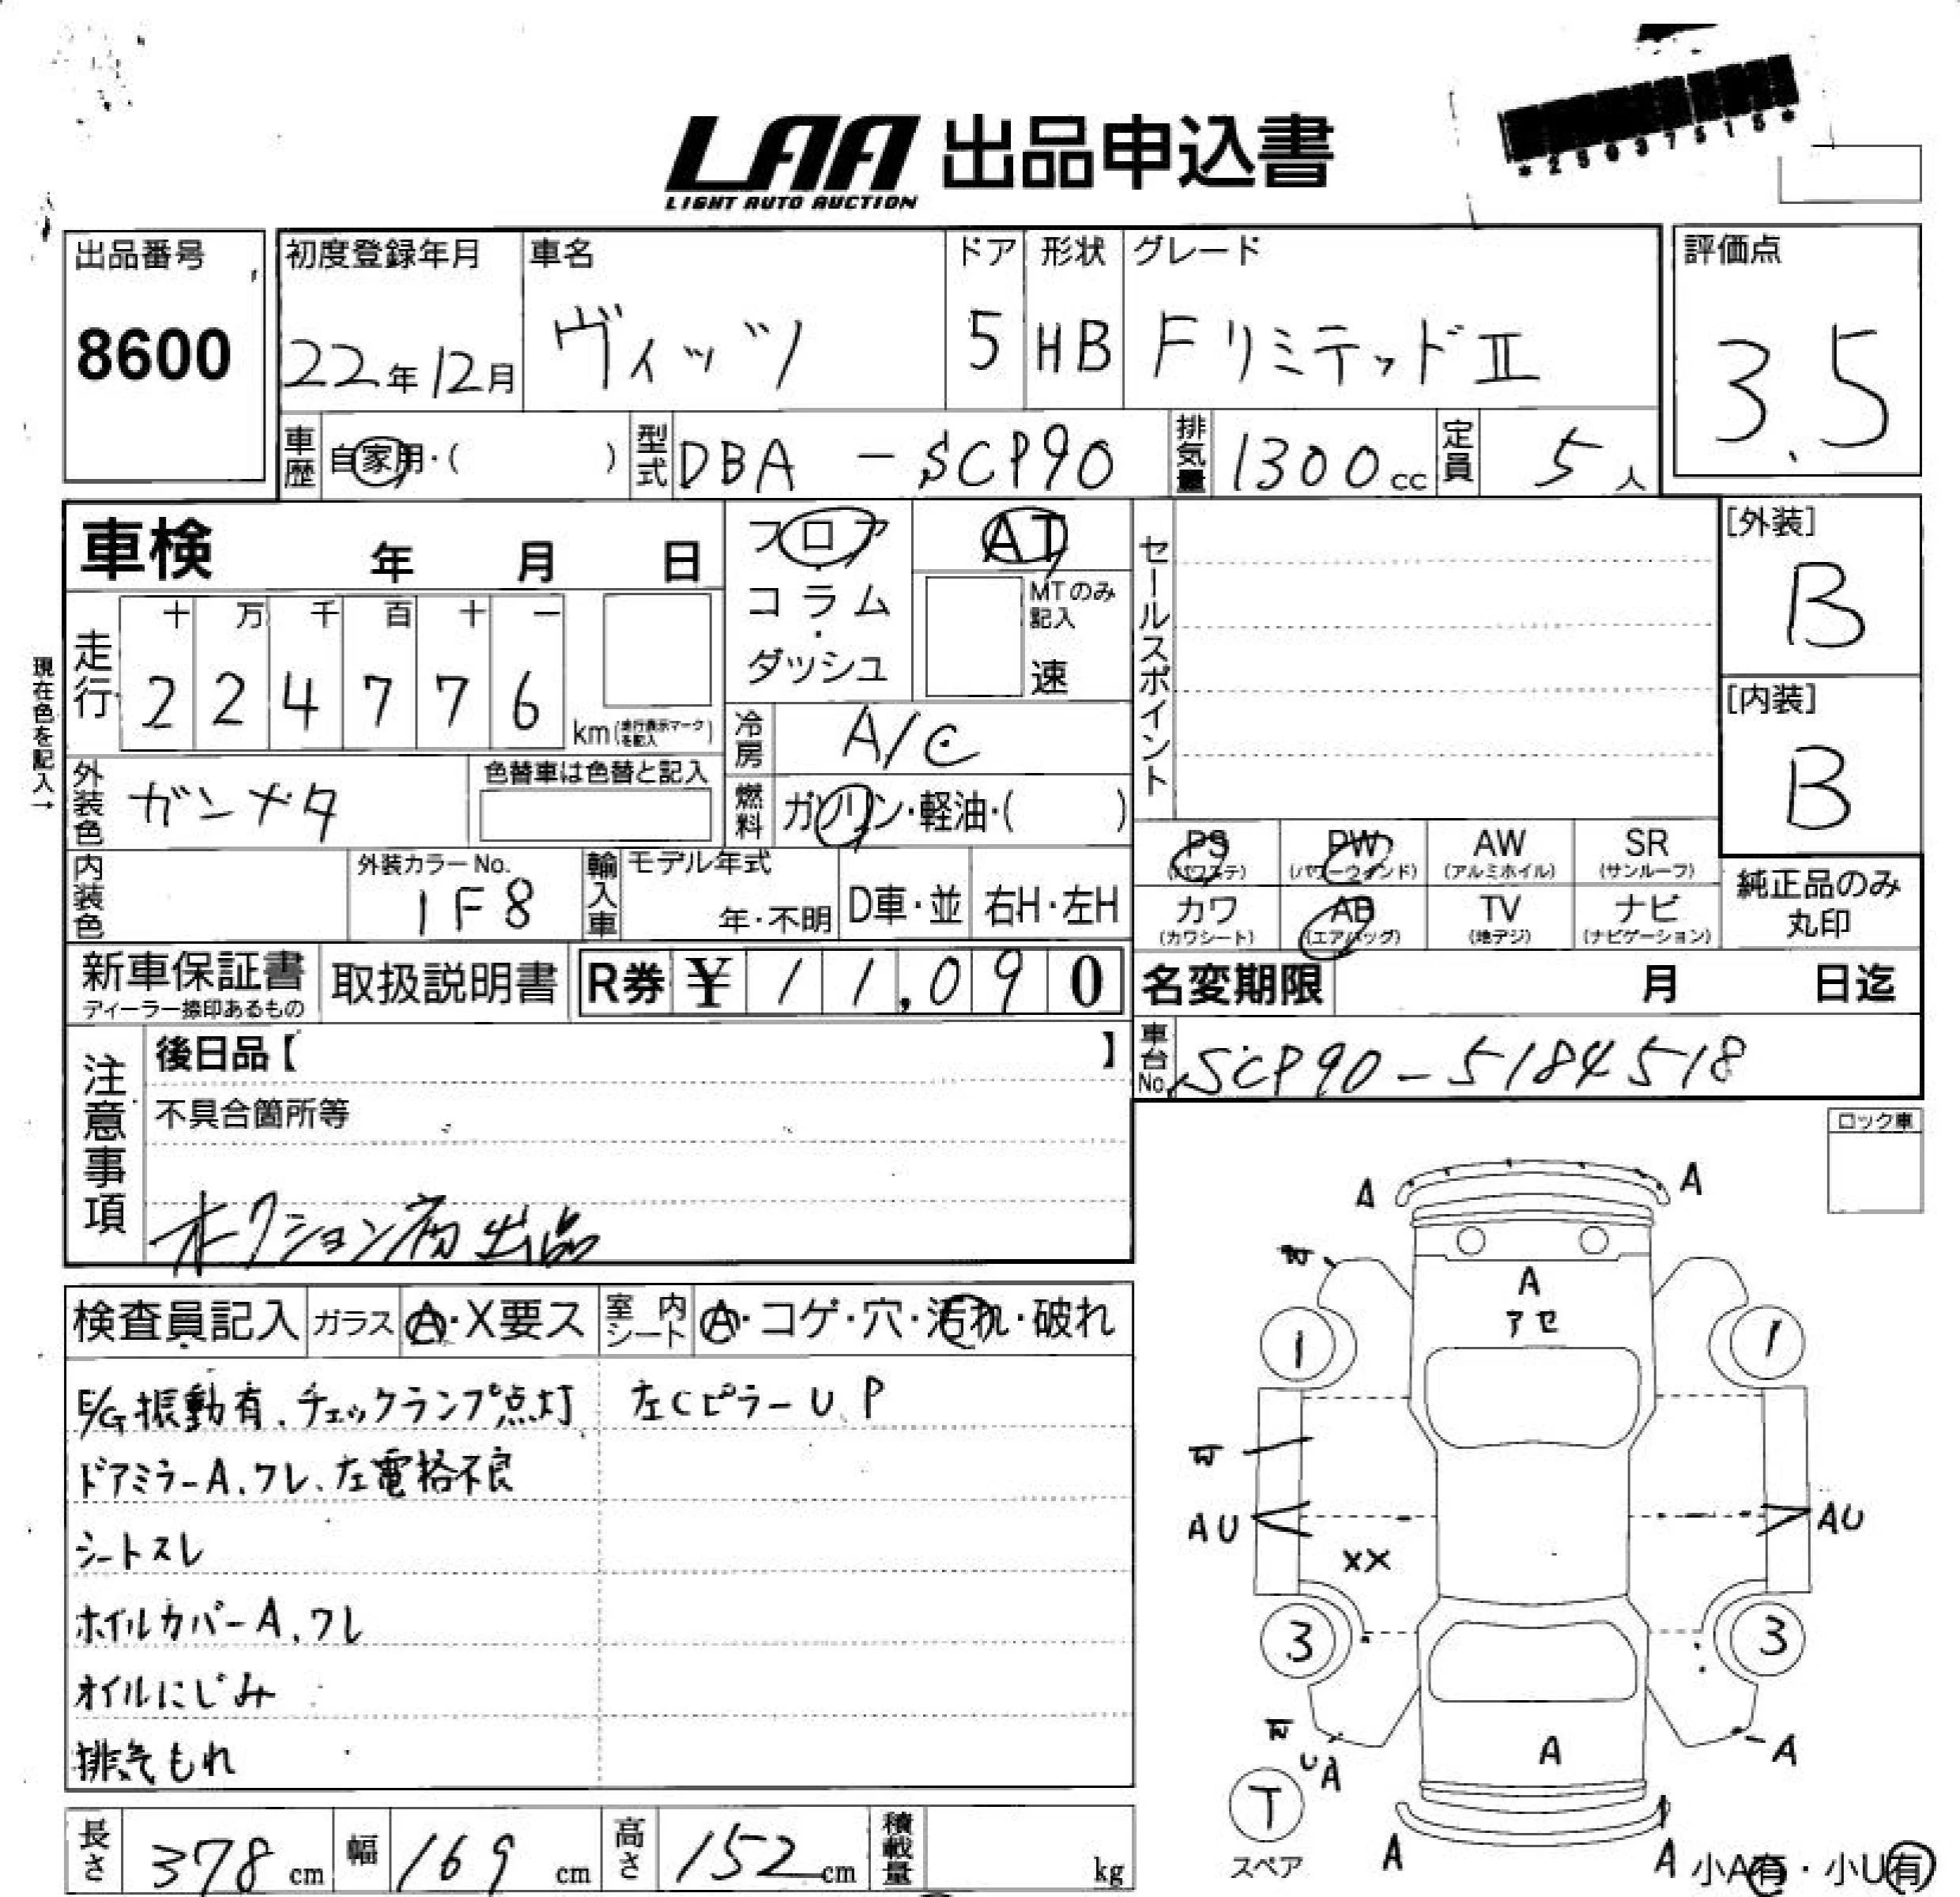 LAA 出品申込書
LIGHT AUTO AUCTION
*25037515*
出品番号
8600
初度登録年月 車名 ドア 形状 グレード 評価点
22年12月 ヴィッツ 5 HB FリミテッドⅡ 3.5
車歴 自家用・( ) 型式 DBA-SCP90 排気量 1300cc 定員 5人
車検 年 月 日
フロア・コラム・ダッシュ
AT
MTのみ記入
速
セールスポイント
[外装]
B
[内装]
B
現在色を記入→
走行 十 万 千 百 十 一
2 2 4 7 7 6 km(走行表示マークを記入)
冷房 A/C
外装色 ガンメタ 色替車は色替と記入
燃料 ガソリン・軽油・( )
PS (パワステ) PW (パワーウィンド) AW (アルミホイル) SR (サンルーフ)
カワ (カワシート) AB (エアバッグ) TV (地デジ) ナビ (ナビゲーション)
純正品のみ丸印
内装色 外装カラーNo. 1F8
輸入車 モデル年式 年・不明 D車・並 右H・左H
新車保証書 ディーラー捺印あるもの 取扱説明書 R券 ¥ 11,090
名変期限 月 日迄
車台No. SCP90-5184518
注意事項
後日品【 】
不具合箇所等
オークション初出品
ロック車
検査員記入 ガラス A・X要ス 室内シート A・コゲ・穴・汚れ・破れ
E/G振動有、チェックランプ点灯 左CピラーU、P
ドアミラーA、ワレ、左電格不良
シートスレ
ホイルカバーA、ワレ
オイルにじみ
排気もれ
A A
A
アセ
1 1
AU AU
XX
3 3
UA A A
T
スペア
A A
小A有・小U有
長さ 378cm 幅 169cm 高さ 152cm 積載量 kg